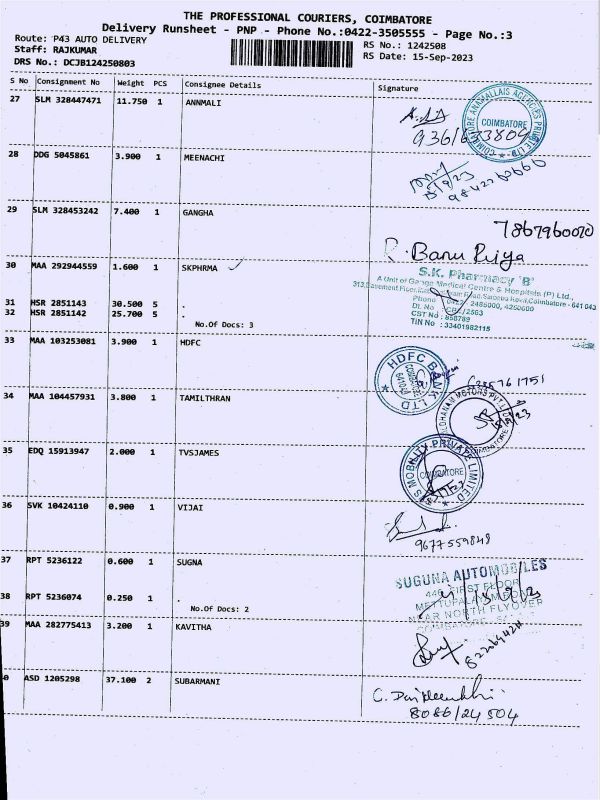 THE PROFESSIONAL COURIERS, COIMBATORE
Delivery Runsheet - PNP - Phone No.:0422-3505555 - Page No.:3
Route: P43 AUTO DELIVERY
RS No.: 1242508
Staff: RAJKUMAR
RS Date: 15-Sep-2023
DRS No.: DCJB124250803
S No Consignment No Weight PCS Consignee Details Signature
27 SLM 328447471 11.750 1 ANNMALI
COIMBATORE
28 DDG 5045861 3.900 1 MEENACHI
29 SLM 328453242 7.400 1 GANGHA
7867960070
R. Banu Priya
30 MAA 292944559 1.600 1 SKPHRMA
S.K. Pharmacy 'B'
A Unit of Ganga Medical Centre & Hospitals (P) Ltd.,
31 HSR 2851143 30.500 5 .
32 HSR 2851142 25.700 5 .
No.Of Docs: 3
CST No : 858789
TIN No : 33401982115
33 MAA 103253081 3.900 1 HDFC
HDFC BANK LTD
34 MAA 104457931 3.800 1 TAMILTHRAN
35 EDQ 15913947 2.000 1 TVSJAMES
MOBILITY PRIVATE LIMITED
COIMBATORE
36 SVK 10424110 0.900 1 VIJAI
9677559848
37 RPT 5236122 0.600 1 SUGNA
SUGUNA AUTOMOBILES
446, FIRST FLOOR
METTUPALAYAM ROAD
NEAR NORTH FLYOVER
38 RPT 5236074 0.250 1 .
No.Of Docs: 2
39 MAA 282775413 3.200 1 KAVITHA
0 ASD 1205298 37.100 2 SUBARMANI
8086124504